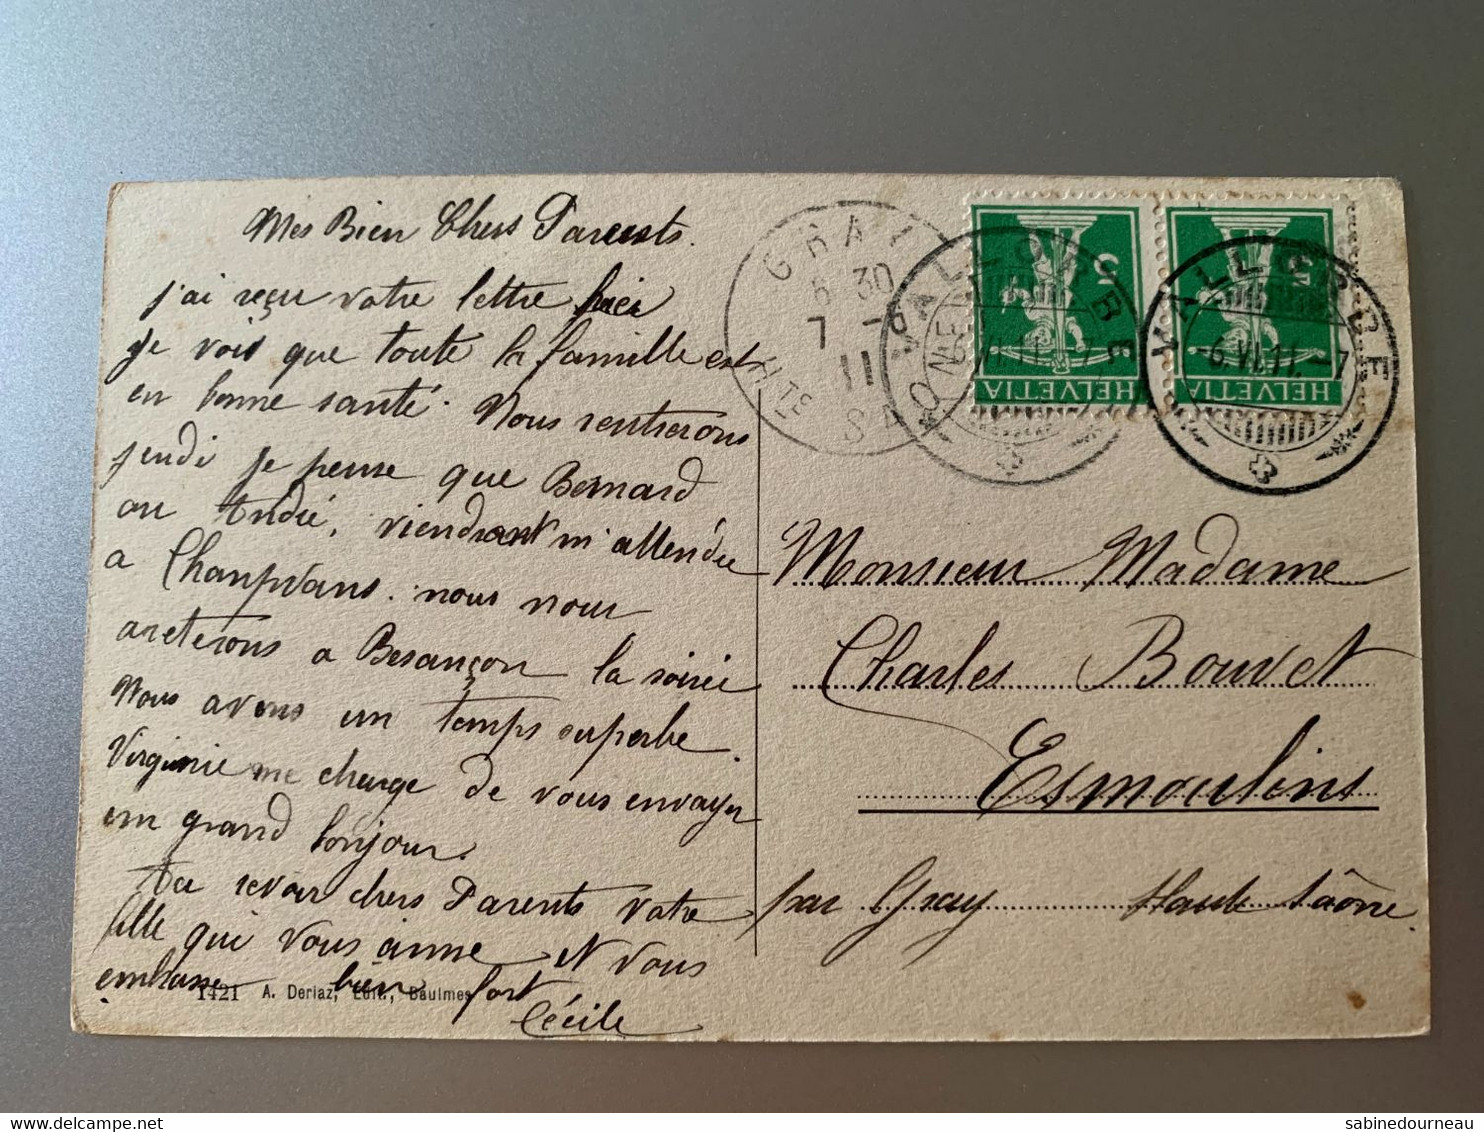 Mes Bien Chers Parents.
j'ai reçu votre lettre hier
je vois que toute la famille est
en bonne santé. Nous rentrerons
jeudi je pense que Bernard
ou André, viendront m'attendre
a Champvans. nous nous
areterons a Besançon la soirée
Nous avons un temps superbe.
Virginie me charge de vous envoyer
un grand bonjour.
Au revoir chers Parents votre
fille qui vous aime et vous
embrasse bien fort
Cécile
1421 A. Deriaz, Edit., Baulmes
GRAY
6 30
7 -6
11
HTE SA
VALLORBE
6.VI.11.-7
HELVETIA
5
VALLORBE
-6.VI.11.-7
HELVETIA
5
Monsieur Madame
Charles Bouvet
Esmoulins
par Gray Haute Saône.
sabinedourneau